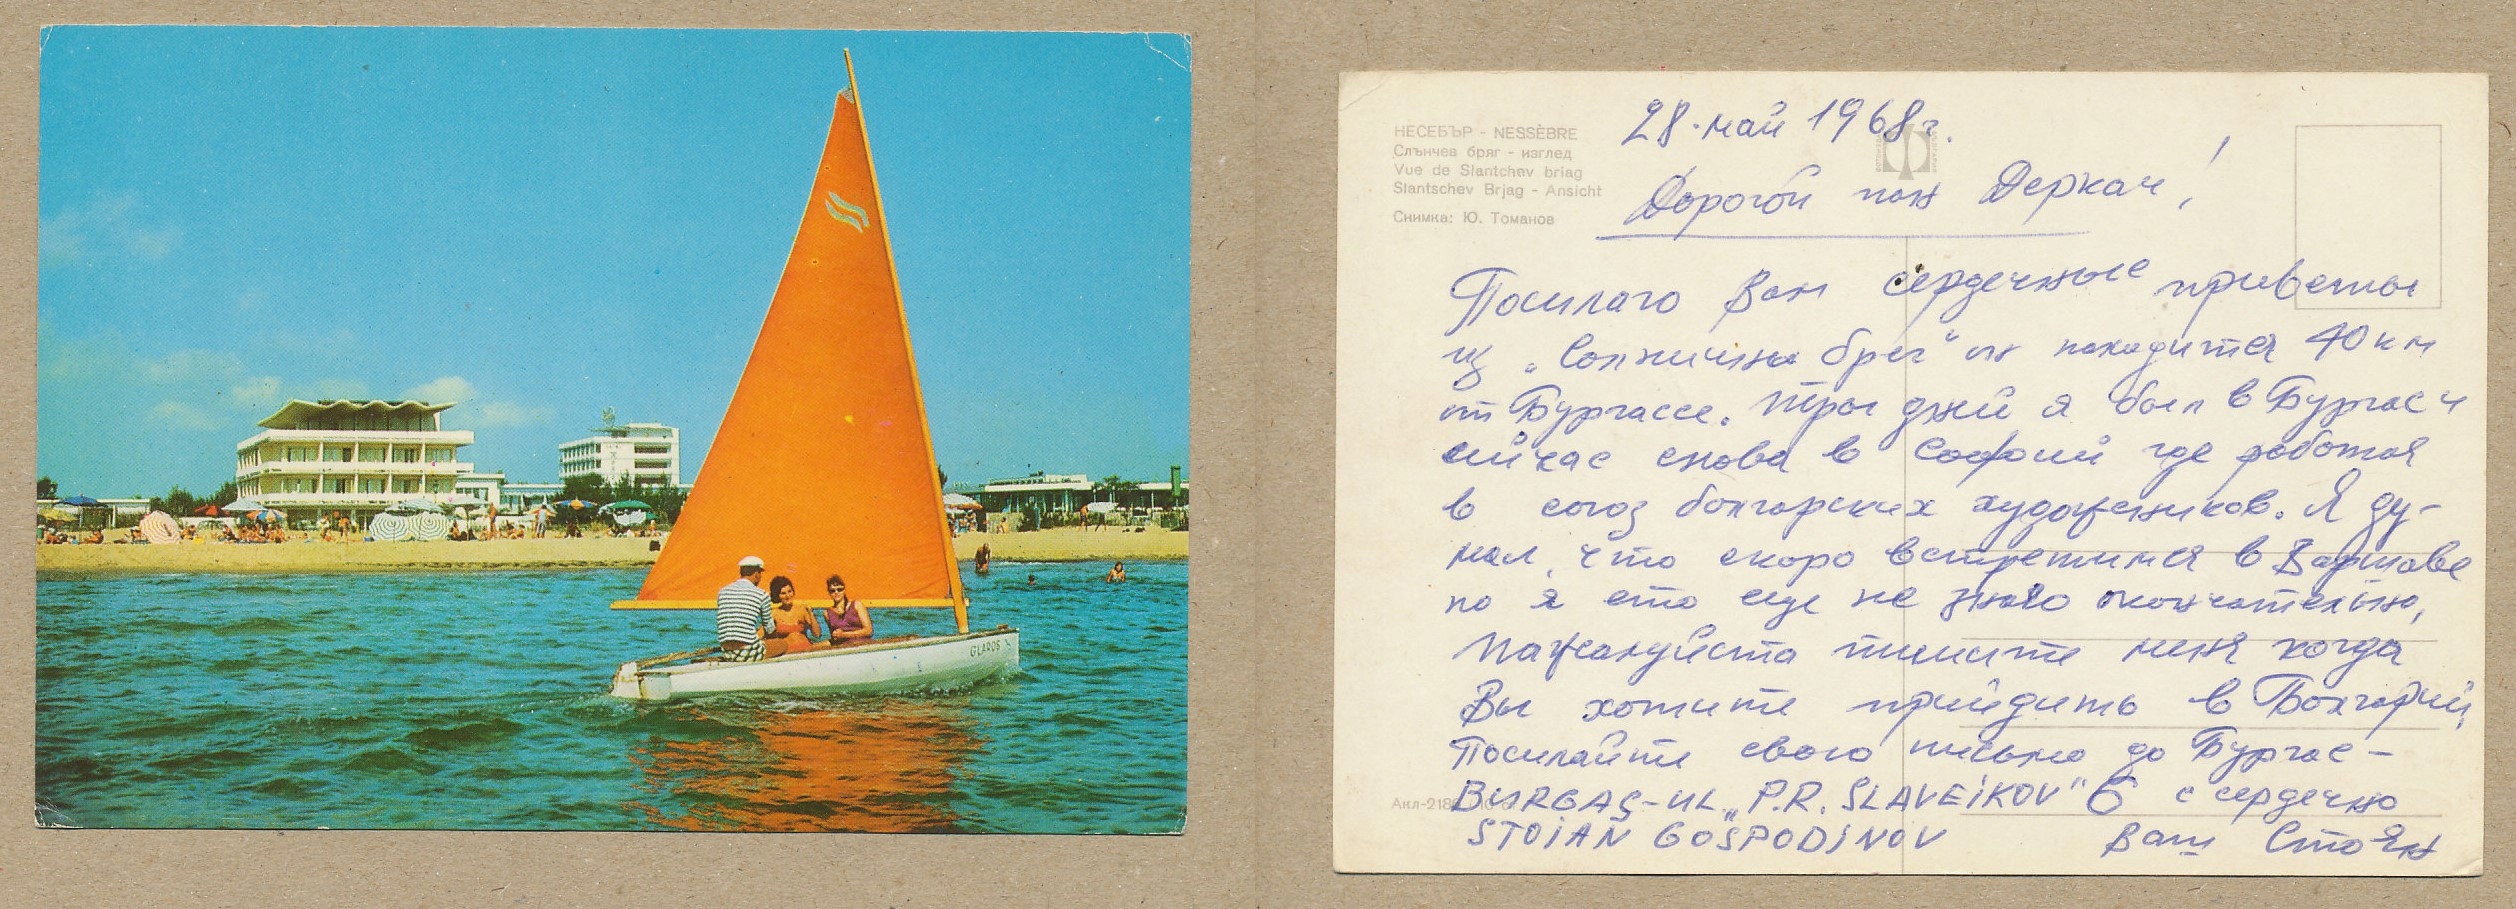 GLAROS
НЕСЕБЪР - NESSÈBRE
Слънчев бряг - изглед
Vue de Slantchev briag
Slantschev Brjag - Ansicht
Снимка: Ю. Томанов
28. май 1968 г.
Дорогой пан Деркач!
Посилаю Вам сердечные приветы
из „Солничны брег" он находится 40 км
от Бургассе. Три дний я был в Бургас и
сийчас снова в Софоий где работая
в союз болгарских художеников. Я ду-
мал, что скоро встретимся в Варшаве
но я ето еще не знаю окончательно,
Пажалуйста пишите меня когда
Вы хотите прийдить в Болгарий,
Посилайте свою письмо до Бургас -
BURGAS - UL „P.R. SLAVEIKOV" 6 с сердечно
STOIAN GOSPODINOV Ваш Стоян